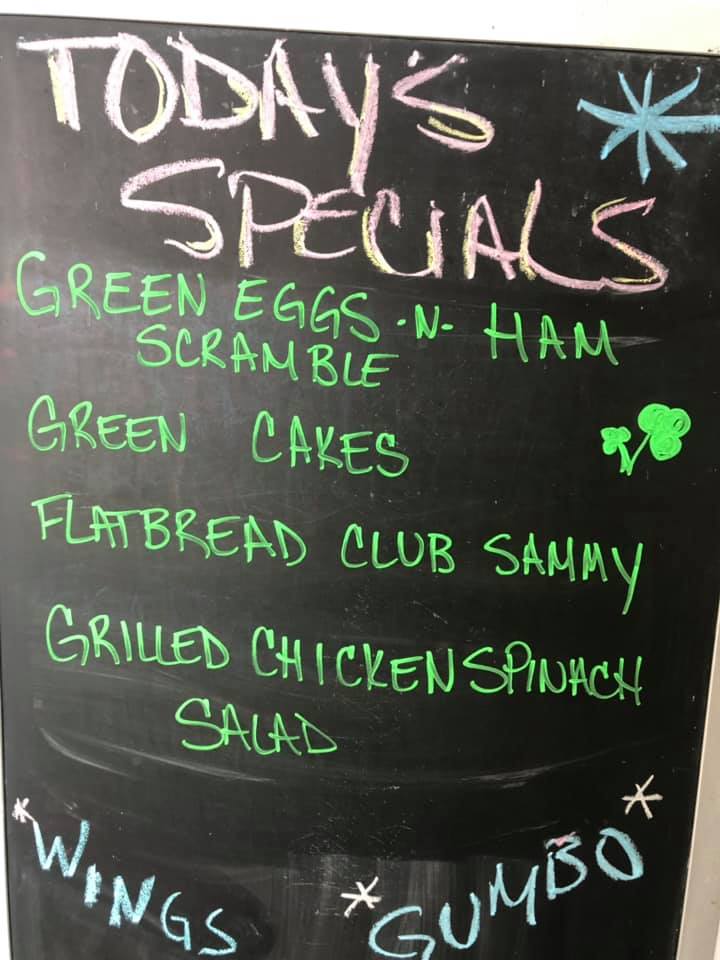 TODAY'S
SPECIALS
GREEN EGGS -N- HAM
SCRAMBLE
GREEN CAKES
FLATBREAD CLUB SAMMY
GRILLED CHICKEN SPINACH
SALAD
*WINGS *GUMBO*